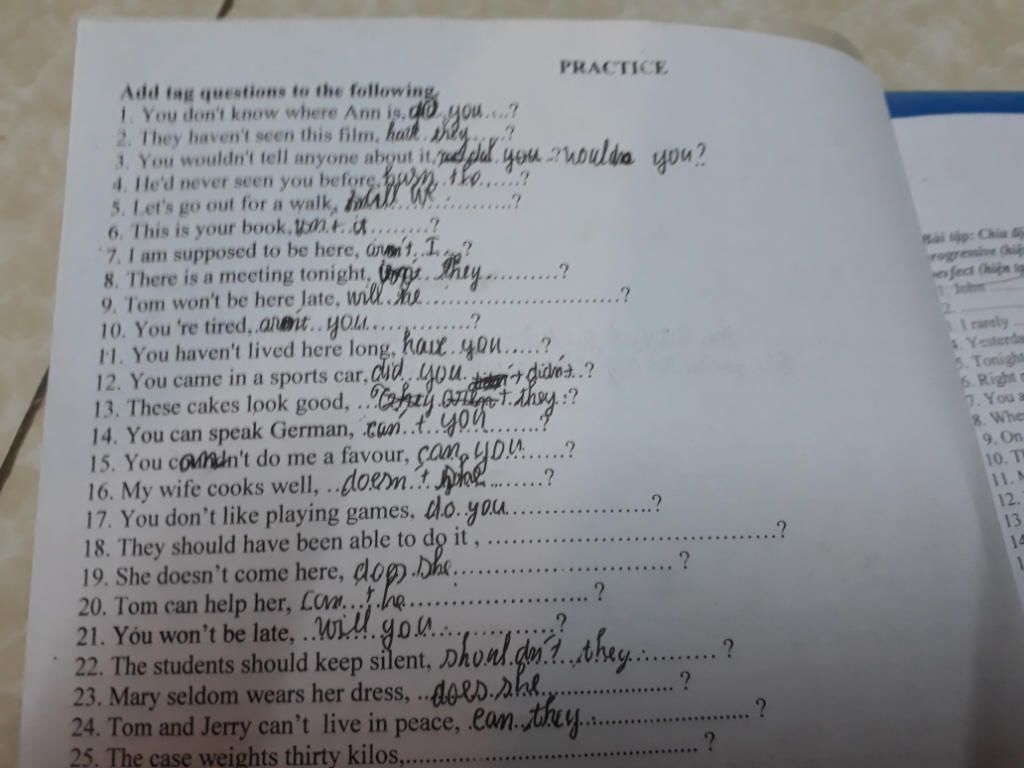 PRACTICE
Add tag questions to the following.
1. You don't know where Ann is, do you....?
2. They haven't seen this film, have they.....?
3. You wouldn't tell anyone about it, did you ..? would you?
4. He'd never seen you before, ......?
5. Let's go out for a walk, we ............?
6. This is your book, isn't it ........?
7. I am supposed to be here, aren't I ...?
8. There is a meeting tonight, they ..........?
9. Tom won't be here late, will he ...........................?
10. You 're tired, aren't you ..............?
11. You haven't lived here long, have you .....?
12. You came in a sports car, did you didn't ..?
13. These cakes look good, ... they .?
14. You can speak German, can't you ........?
15. You n't do me a favour, can you ......?
16. My wife cooks well, ..doesn't she .......?
17. You don't like playing games, do you ...................?
18. They should have been able to do it , .......................................?
19. She doesn't come here, does she ............................. ?
20. Tom can help her, can't he ......................... ?
21. You won't be late, ..will you .............?
22. The students should keep silent, shouldn't they ......... ?
23. Mary seldom wears her dress, ..does she ................. ?
24. Tom and Jerry can't live in peace, can they ..................... ?
25. The case weights thirty kilos,....................................... ?
Bài tập: Chia
1. John
2.
3. I rarely
4. Yesterda
5. Tonight
6. Right
7. You a
8. Whe
9. On
10. T
11.
12.
13